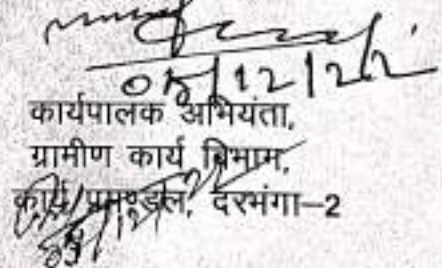 05/12/22
कार्यपालक अभियंता,
ग्रामीण कार्य विभाग,
कार्य प्रमण्डल, दरभंगा–2